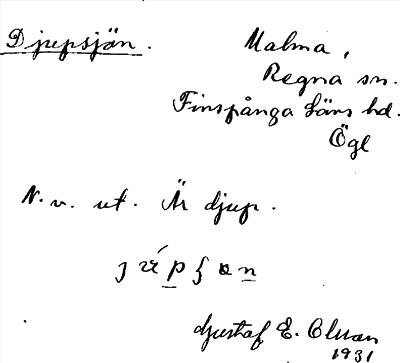 Djupsjön.
Malma,
Regna sn.
Finspånga läns hd.
Ögl
N. v. ut. Är djup.
Gustaf E. Olman
1931